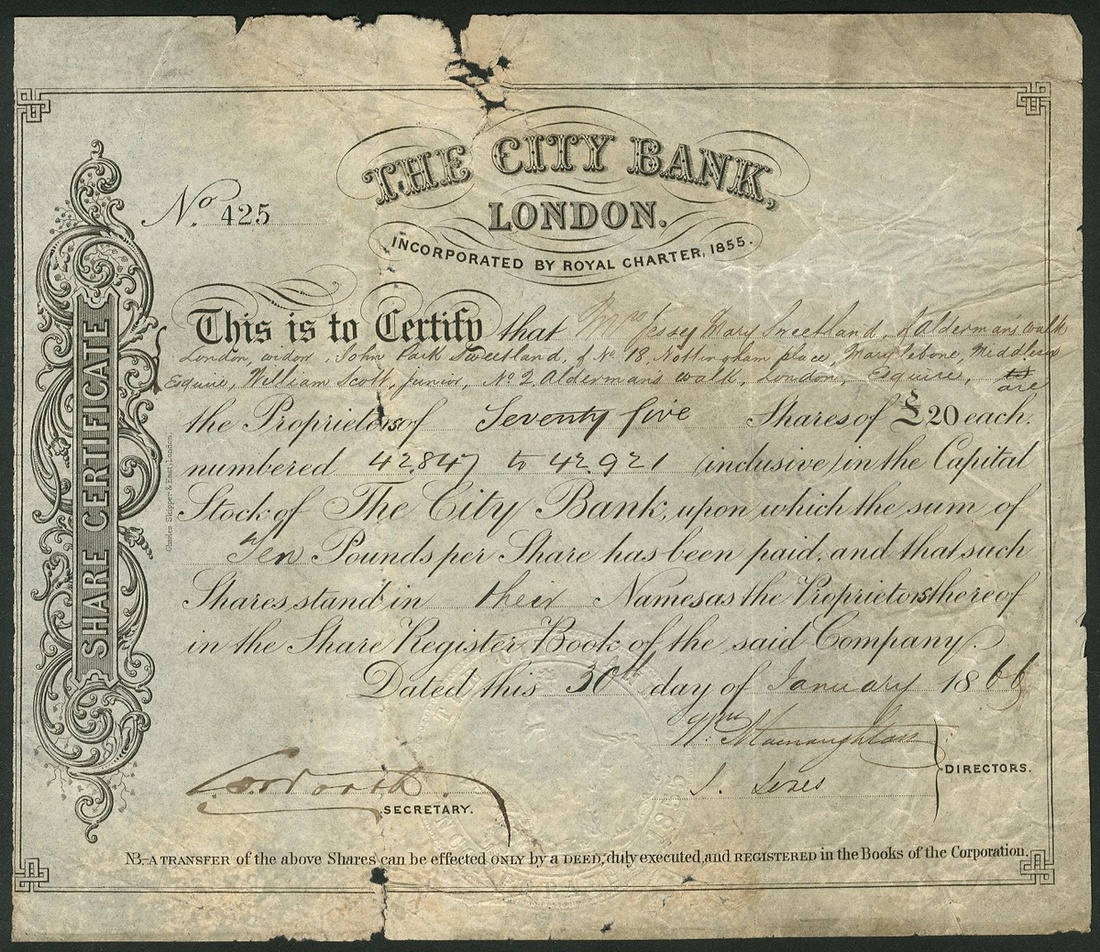 THE CITY BANK,
LONDON.
INCORPORATED BY ROYAL CHARTER, 1855.
No. 425
SHARE CERTIFICATE
This is to Certify that Mrs Jessy Mary Sweetland, of Aldermans walk
London, widow, John Park Sweetland, of No. 18 Nottingham place, Marylebone, Middlesex
Esquire, William Scott, junior, No 2 Aldermans walk, London, Esquire, are
the Proprietors of Seventy five Shares of £20 each,
numbered 42.847 to 42.921 (inclusive) in the Capital
Stock of The City Bank, upon which the sum of
Ten Pounds per Share has been paid, and that such
Shares stand in their Names as the Proprietors thereof
in the Share Register Book of the said Company.
Dated this 30th day of January 1866
Wm Macnaughtan
J. Jones
DIRECTORS.
SECRETARY.
NB. A TRANSFER of the above Shares can be effected ONLY by a DEED, duly executed, and REGISTERED in the Books of the Corporation.
1855